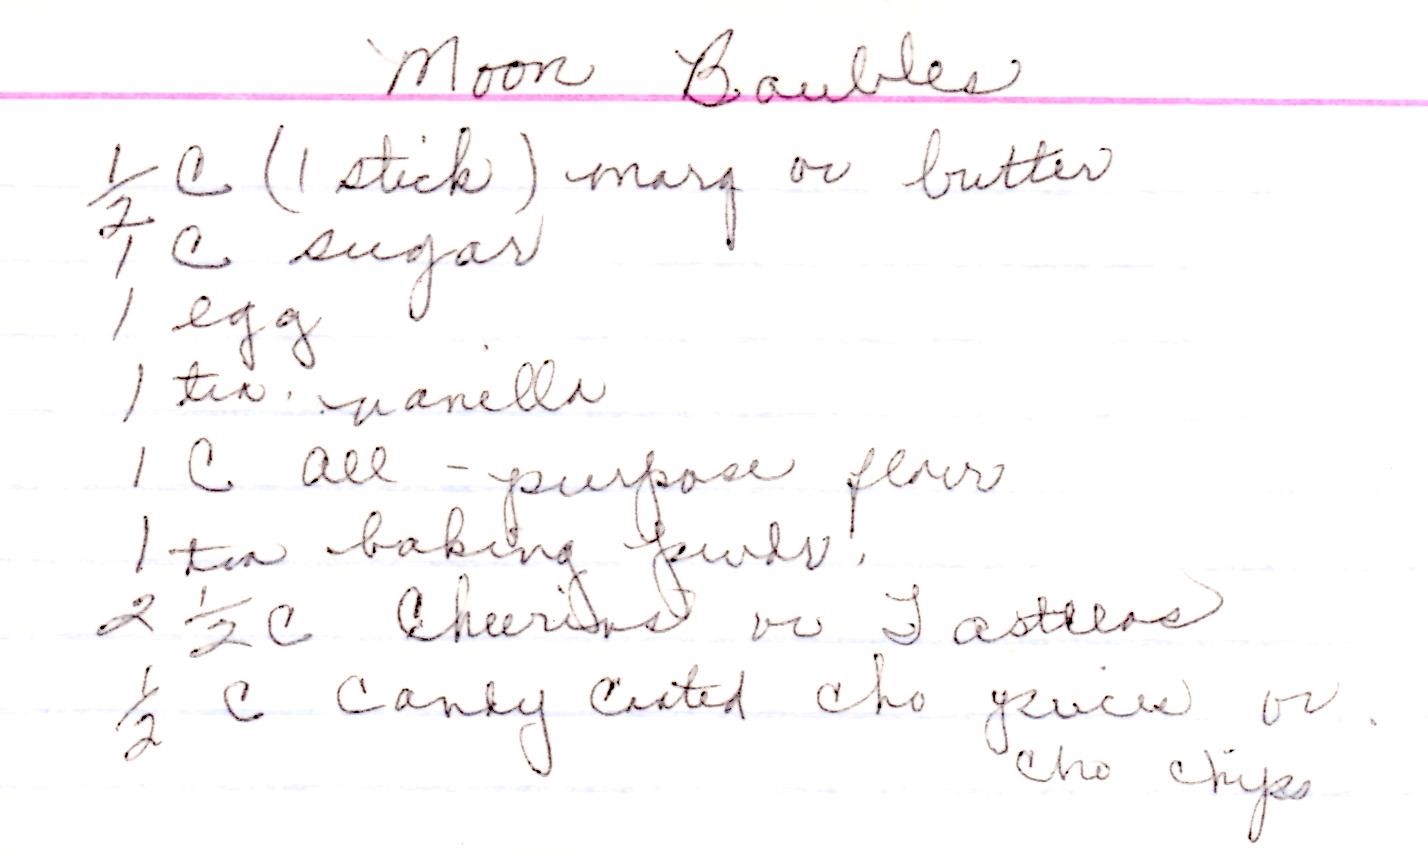 Moon Baubles
1/2 C (1 stick) marg or butter
1 C sugar
1 egg
1 tea. vanilla
1 C all-purpose flour
1 tea baking powdr.
2 1/2 C Cheerios or Tasteeos
1/2 C Candy Coated cho pieces or
cho chips